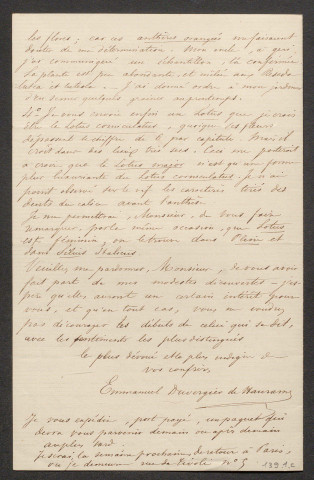 les flores ; car ces anthères orangées me faisaient
douter de ma détermination. Mon oncle, à qui
j'ai communiqué un échantillon, l'a confirmée.
La plante est peu abondante, et mêlée aux Reseda
lutea et luteola. — J'ai donné ordre à mon jardinier
d'en semer quelques graines au printemps.
4° Je vous envoie enfin un Lotus que je crois
être le Lotus corniculatus, quoique ses fleurs
dépassent le chiffre de 6 par capitule. Mais il
croît dans des lieux très secs. Ceci me porterait
à croire que le Lotus major n'est qu'une forme
plus luxuriante du Lotus corniculatus. Je n'ai
point observé sur le vif les caractères tirés des
dents du calice avant l'anthèse.
Je me permettrai, Monsieur, de vous faire
remarquer, par la même occasion, que Lotus
est féminin, on le trouve dans Pline et
dans Silius Italicus.
Veuillez me pardonner, Monsieur, de vous avoir
fait part de mes modestes découvertes — j'es-
père qu'elles auront un certain intérêt pour
vous, et qu'en tout cas, vous ne voudrez
pas décourager les débuts de celui qui se dit,
avec les sentiments les plus distingués
le plus dévoué et le plus indigne de
vos confrères.
Emmanuel Duvergier de Hauranne
Je vous expédie, port payé, un paquet qui
devra vous parvenir demain ou après demain
au plus tard.
Je serai la semaine prochaine de retour à Paris,
où je demeure rue de Rivoli n° 5